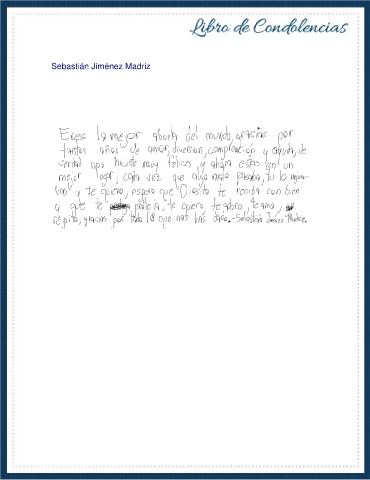 Libro de Condolencias
Sebastián Jiménez Madriz
Eres la mejor abuela del mundo, gracias por
tantos años de amor, diversion, comprencion y ayuda, de
verdad nos hiciste muy felices, y ahora estas en un
mejor lugar, cada vez que algo malo pasaba, tu lo
y te quiero, espero que Diosito te reciba con bien
y que te proteja, te quiero, te adoro, te amo,
repito, gracias por todo lo que nos has dado.-Sebastián Jiménez Madriz.